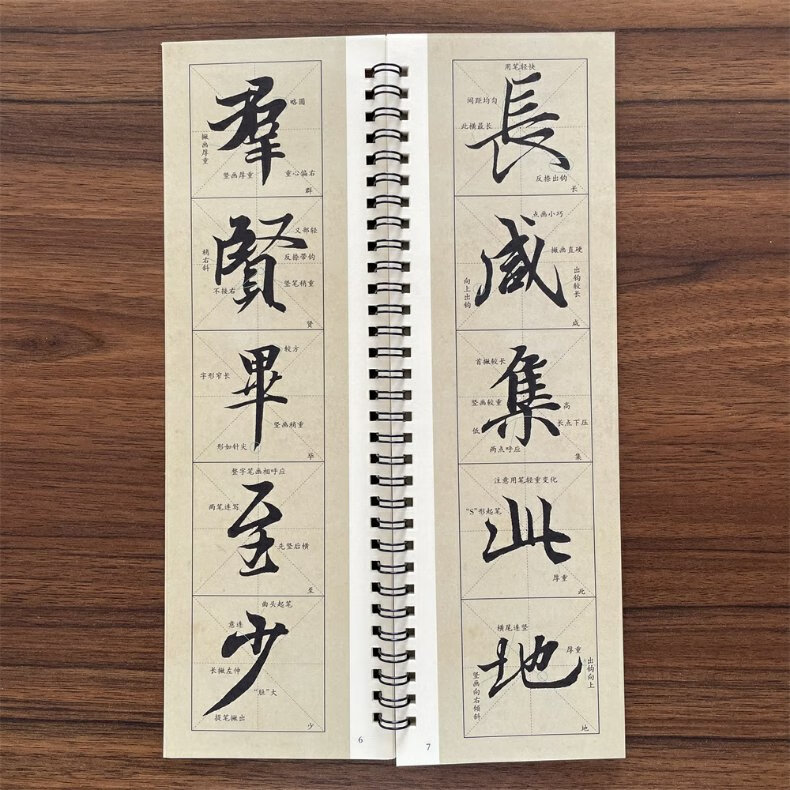 羣
略圆
撇画厚重
竖画厚重
重心偏右
群
賢
又部轻
稍右斜
反捺带钩
不接右
竖笔稍重
贤
畢
较方
字形窄长
竖画稍重
形如针尖
毕
整字笔画相呼应
至
两笔连写
先竖后横
至
曲头起笔
少
意连
长撇左伸
“肚”大
提笔撇出
少
6
用笔轻快
長
间距均匀
此横最长
反捺出钩
长
点画小巧
咸
撇画直硬
向上出钩
出钩较长
咸
首撇较长
集
竖画较重
高
低
长点下压
两点呼应
集
注意用笔轻重变化
此
“S”形起笔
厚重
此
横尾连竖
地
厚重
出钩向上
竖画向右倾斜
地
7